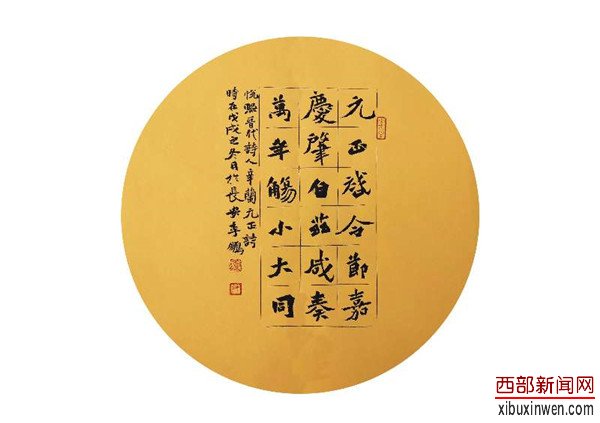 元正啟令節嘉
慶肇自茲咸奏
萬年觴小大同
悅熙晉代詩人辛蘭元正詩
時在戊戌之冬月於長安李鵬
西部新闻网
xibuxinwen.com